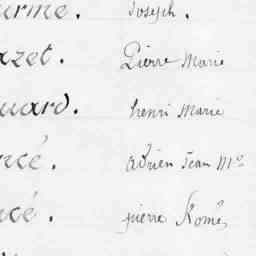 urme. Joseph.
azet. Pierre Marie
uard. henri Marie
ncé. adrien Jean Mie
cé. pierre Romé